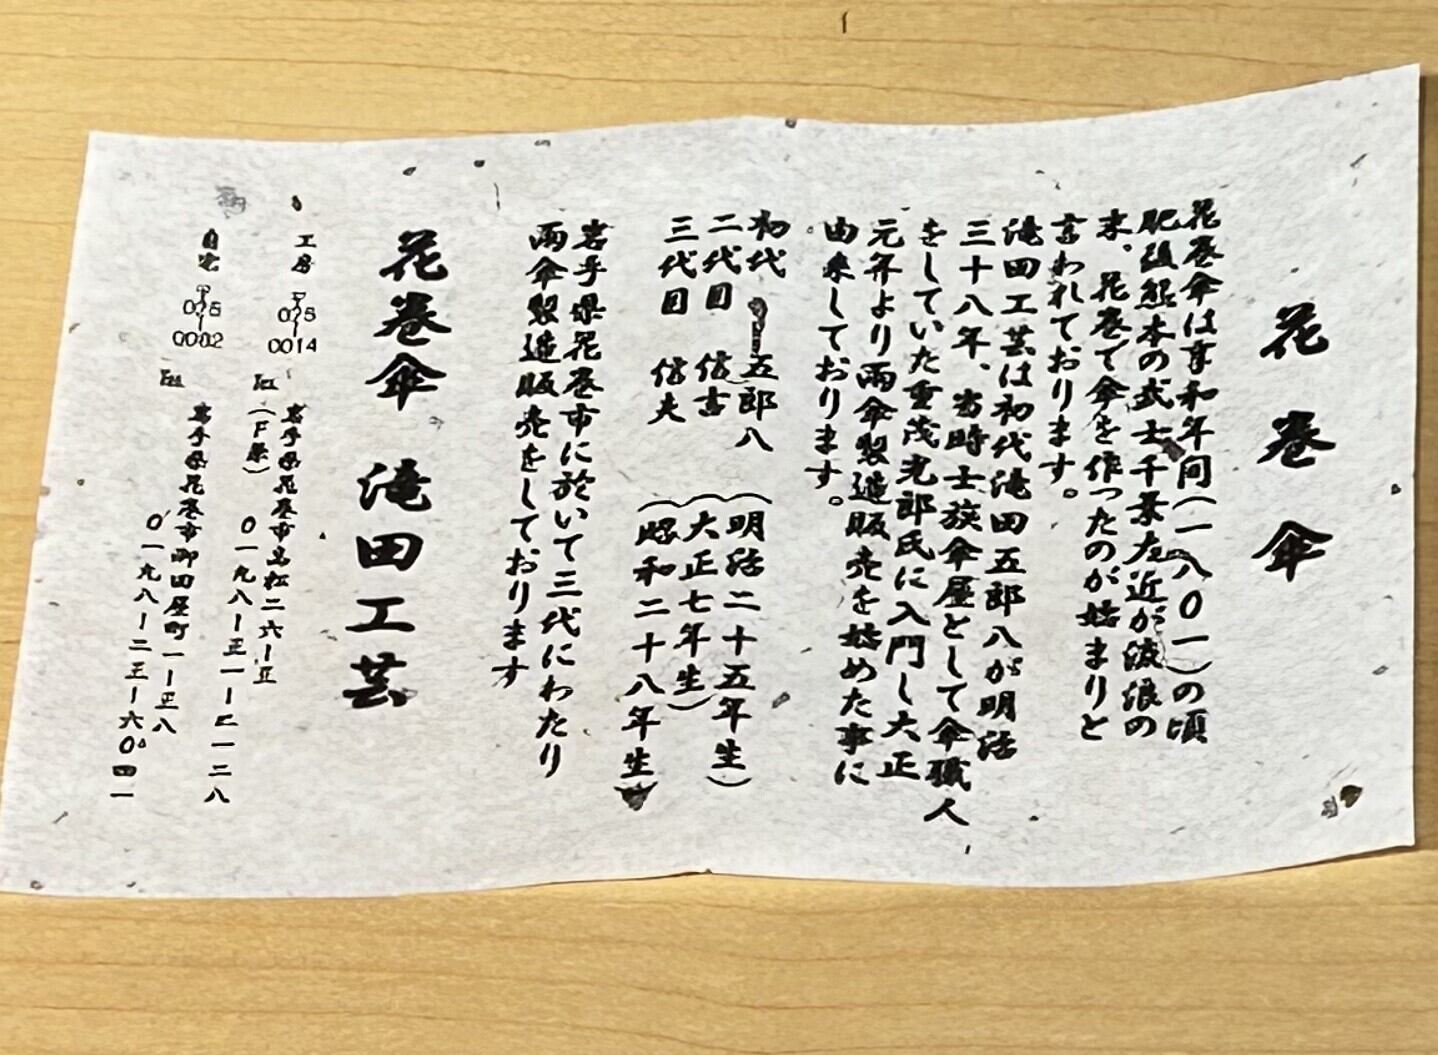 花巻傘
花巻傘は享和年間(一八〇一)の頃
肥後熊本の武士千葉左近が流浪の
末、花巻で傘を作ったのが始まりと
言われております。
滝田工芸は初代滝田五郎八が明治
三十八年、当時士族傘屋として傘職人
をしていた重茂光郎氏に入門し大正
元年より雨傘製造販売を始めた事に
由来しております。
初代 五郎八 (明治二十五年生)
二代目 信吉 (大正七年生)
三代目 信夫 (昭和二十八年生)
岩手県花巻市に於いて三代にわたり
雨傘製造販売をしております
花巻傘 滝田工芸
工房 〒025-0014 岩手県花巻市高松二六
自宅 〒025-0002 岩手県花巻市御田屋町一